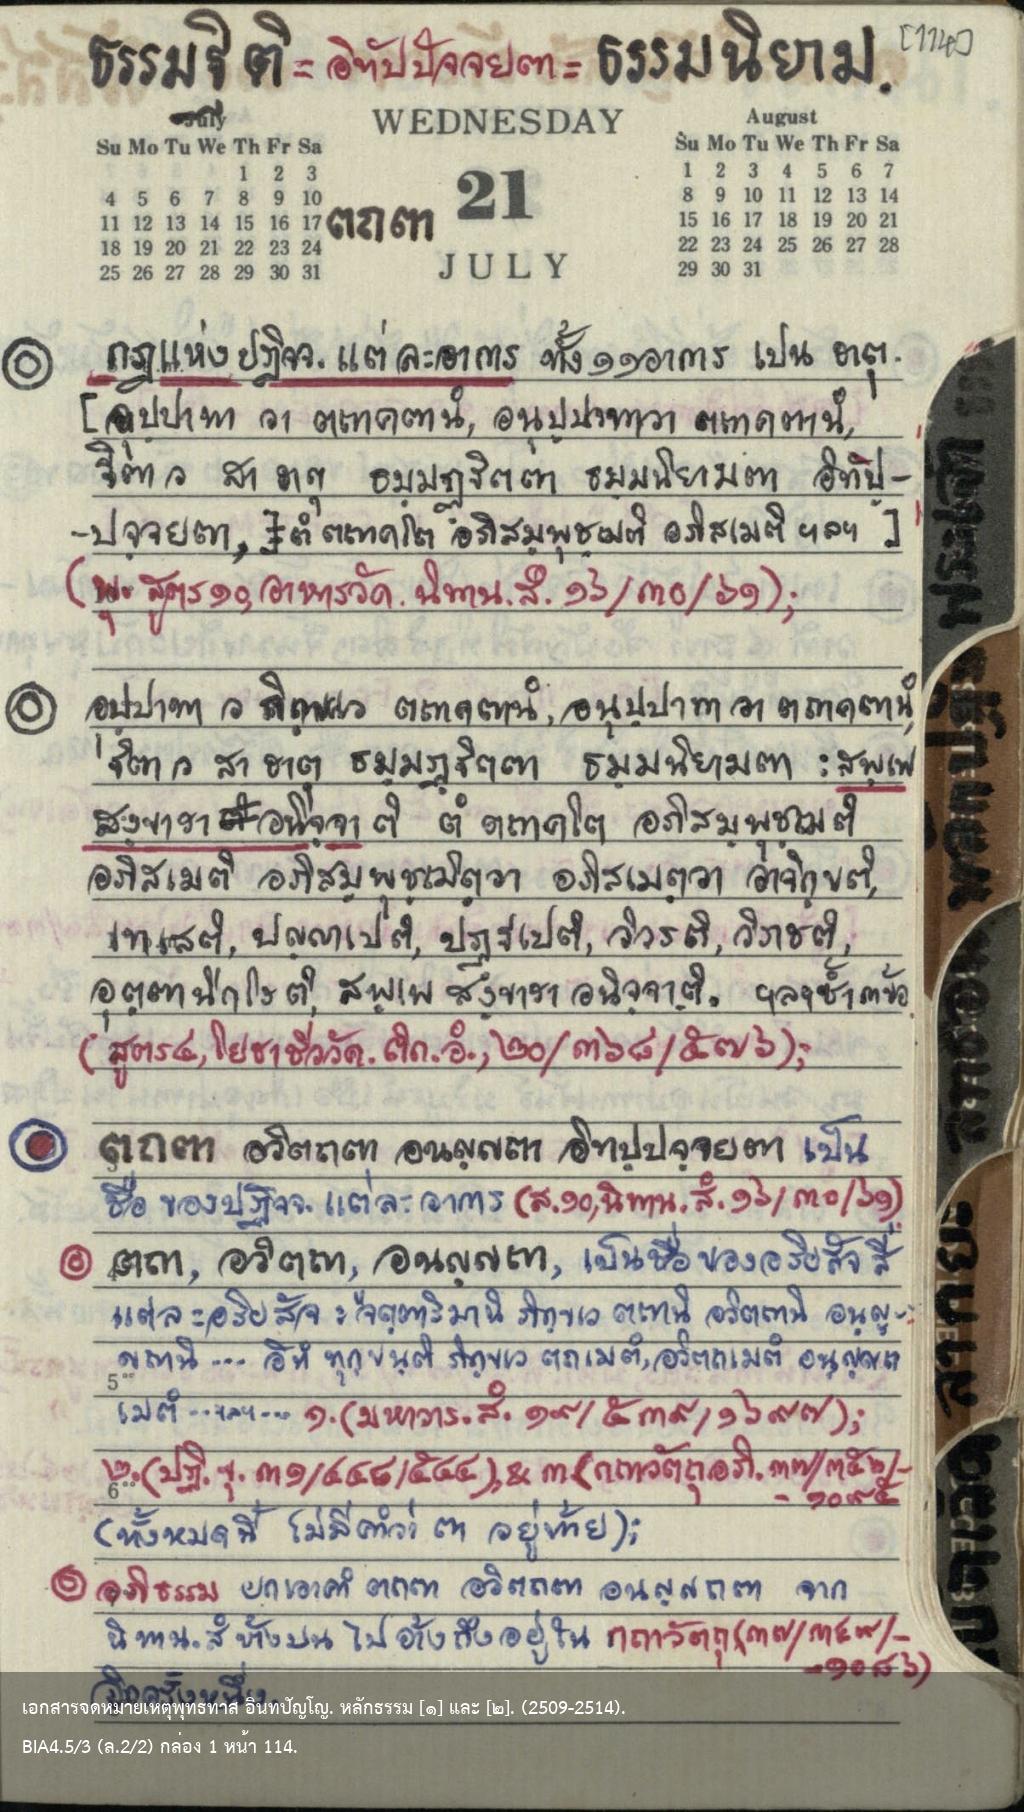 ธรรมฐิติ = อิทัปปัจจยตา = ธรรมนิยาม. [๑๑๔]
July
WEDNESDAY
August
Su Mo Tu We Th Fr Sa
Su Mo Tu We Th Fr Sa
1 2 3
4 5 6 7 8 9 10
11 12 13 14 15 16 17
18 19 20 21 22 23 24
25 26 27 28 29 30 31
ตถตา
21
JULY
1 2 3 4 5 6 7
8 9 10 11 12 13 14
15 16 17 18 19 20 21
22 23 24 25 26 27 28
29 30 31
กฎแห่งปฏิจจ. แต่ละอาการ ทั้ง ๑๑ อาการ เป็น ธาตุ.
[อุปฺปาทา วา ตถาคตานํ, อนุปฺปาทา วา ตถาคตานํ,
ฐิตา ว สา ธาตุ ธมฺมฏฺฐิตตา ธมฺมนิยามตา อิทปฺ-
-ปจฺจยตา, ตํ ตถาคโต อภิสมฺพุชฺฌติ อภิสเมติ ฯลฯ ]
(พุ. สูตร ๑๐, อาหารวัค. นิทาน. สํ. ๑๖/๓๐/๖๑);
อุปฺปาทา ว ภิกฺขเว ตถาคตานํ, อนุปฺปาทา วา ตถาคตานํ,
ฐิตา ว สา ธาตุ ธมฺมฏฺฐิตตา ธมฺมนิยามตา : สพฺเพ
สงฺขารา อนิจฺจา ติ ตํ ตถาคโต อภิสมฺพุชฺฌติ
อภิสเมติ อภิสมฺพุชฺฌิตฺวา อภิสเมตฺวา อาจิกฺขติ,
เทเสติ, ปญฺญาเปติ, ปฏฺฐเปติ, วิวรติ, วิภชติ,
อุตฺตานีกโรติ, สพฺเพ สงฺขารา อนิจฺจาติ. ฯลฯ ซ้ำ ๓ ข้อ
(สูตร ๔, โยธาชีววัค. ติก. อํ., ๒๐/๓๖๘/๕๗๖);
ตถตา อวิตถตา อนญฺญตา อิทปฺปจฺจยตา เป็น
ชื่อ ของปฏิจจ. แต่ละ อาการ (ส.๑๐, นิทาน. สํ. ๑๖/๓๐/๖๑)
ตถา, อวิตถา, อนญฺญถา, เป็นชื่อของอริยสัจสี่
แต่ละอริยสัจ : จตฺตาริมานิ ภิกฺขเว ตถานิ อวิตถานิ อนญฺ-
ญถานิ ... อิทํ ทุกฺขนฺติ ภิกฺขเว ตถเมตํ, อวิตถเมตํ อนญฺญถ
5
เมตํ ...ฯลฯ... ๑. (มหาวาร. สํ. ๑๙/๕๓๙/๑๖๙๗);
๒. (ปฏิ. ขุ. ๓๑/๔๔๘/๕๔๔), & ๓. (กถาวัตถุ อภิ. ๓๗/๓๕๖/-
6
- ๑๐๙๕
(ทั้งหมดนี้ ไม่มีคำว่า ตา อยู่ท้าย);
อภิธรรม ยกเอาคำ ตถตา อวิตถตา อนญฺญถตา จาก
นิทาน. สํ ทั้งบน ไปอ้างถึงอยู่ใน กถาวัตถุ (๓๗/๓๔๙/-
-๑๐๘๖)
อีกครั้งหนึ่ง.
พระเจ้า
สาวก
เอกสารจดหมายเหตุพุทธทาส อินทปัญโญ. หลักธรรม [๑] และ [๒]. (2509-2514).
BIA4.5/3 (ล.2/2) กล่อง 1 หน้า 114.